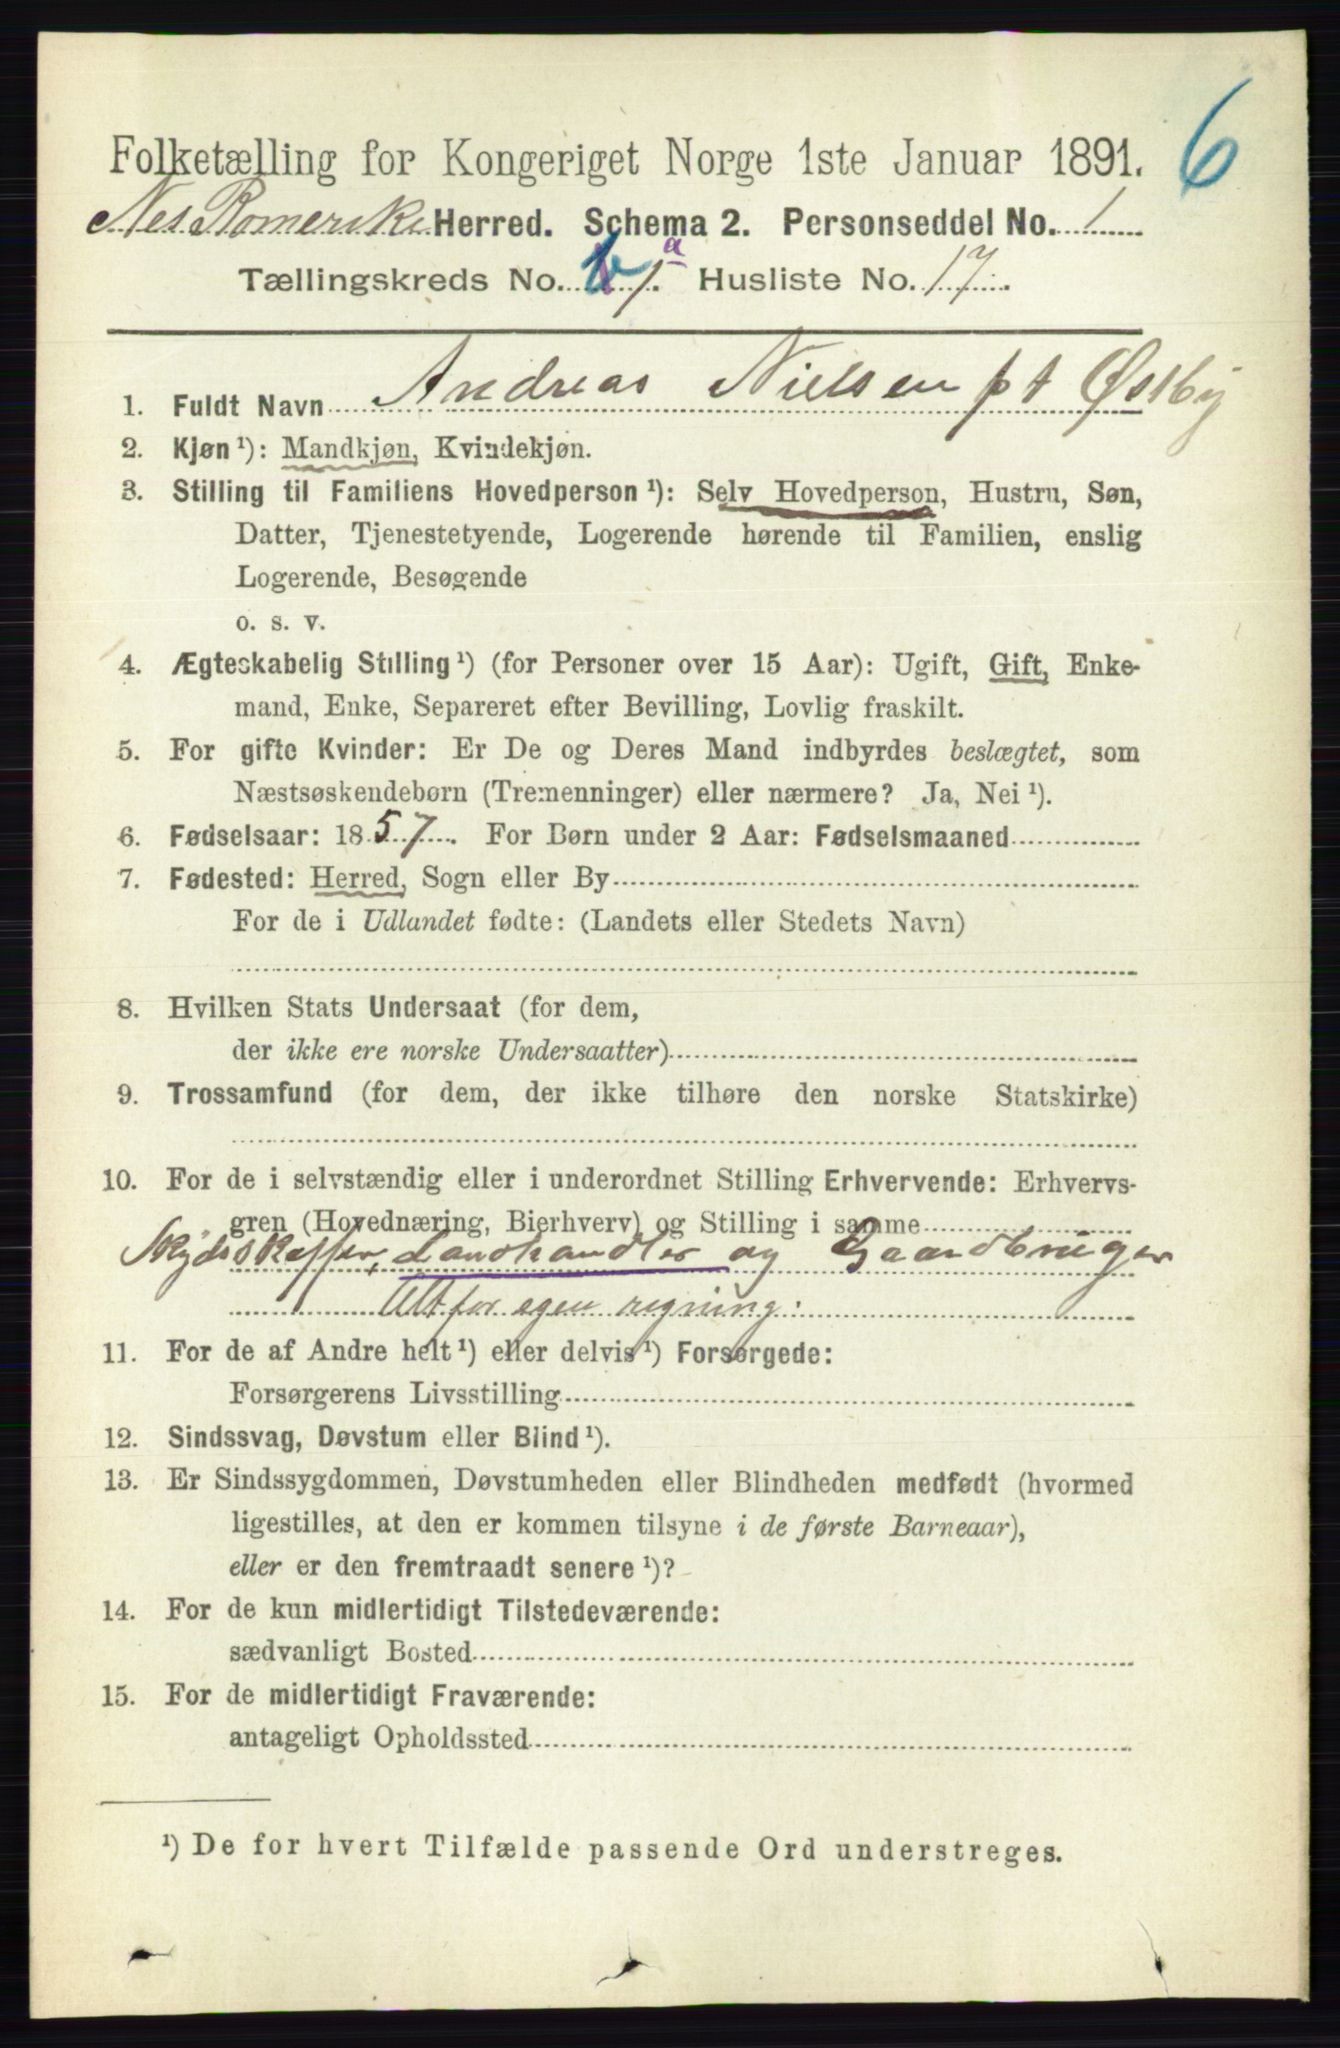 6
Folketælling for Kongeriget Norge 1ste Januar 1891.
Nes Romerike Herred. Schema 2. Personseddel No. 1
Tællingskreds No. 1a. Husliste No. 17.
1. Fuldt Navn Andreas Nielsen pt Østby
2. Kjøn ¹): Mandkjøn, Kvindekjøn.
3. Stilling til Familiens Hovedperson ¹): Selv Hovedperson, Hustru, Søn,
Datter, Tjenestetyende, Logerende hørende til Familien, enslig
Logerende, Besøgende
o. s. v.
4. Ægteskabelig Stilling ¹) (for Personer over 15 Aar): Ugift, Gift, Enke-
mand, Enke, Separeret efter Bevilling, Lovlig fraskilt.
5. For gifte Kvinder: Er De og Deres Mand indbyrdes beslægtet, som
Næstsøskendebørn (Tremenninger) eller nærmere? Ja, Nei ¹).
6. Fødselsaar: 1857. For Børn under 2 Aar: Fødselsmaaned
7. Fødested: Herred, Sogn eller By
For de i Udlandet fødte: (Landets eller Stedets Navn)
8. Hvilken Stats Undersaat (for dem,
der ikke ere norske Undersaatter)
9. Trossamfund (for dem, der ikke tilhøre den norske Statskirke)
10. For de i selvstændig eller i underordnet Stilling Erhvervende: Erhvervs-
gren (Hovednæring, Bierhverv) og Stilling i samme
Skydsskaffer, Landhandler og Gaardbruger
Alt for egen regning:
11. For de af Andre helt ¹) eller delvis ¹) Forsørgede:
Forsørgerens Livsstilling
12. Sindssvag, Døvstum eller Blind ¹).
13. Er Sindssygdommen, Døvstumheden eller Blindheden medfødt (hvormed
ligestilles, at den er kommen tilsyne i de første Barneaar),
eller er den fremtraadt senere ¹)?
14. For de kun midlertidigt Tilstedeværende:
sædvanligt Bosted
15. For de midlertidigt Fraværende:
antageligt Opholdssted
¹) De for hvert Tilfælde passende Ord understreges.